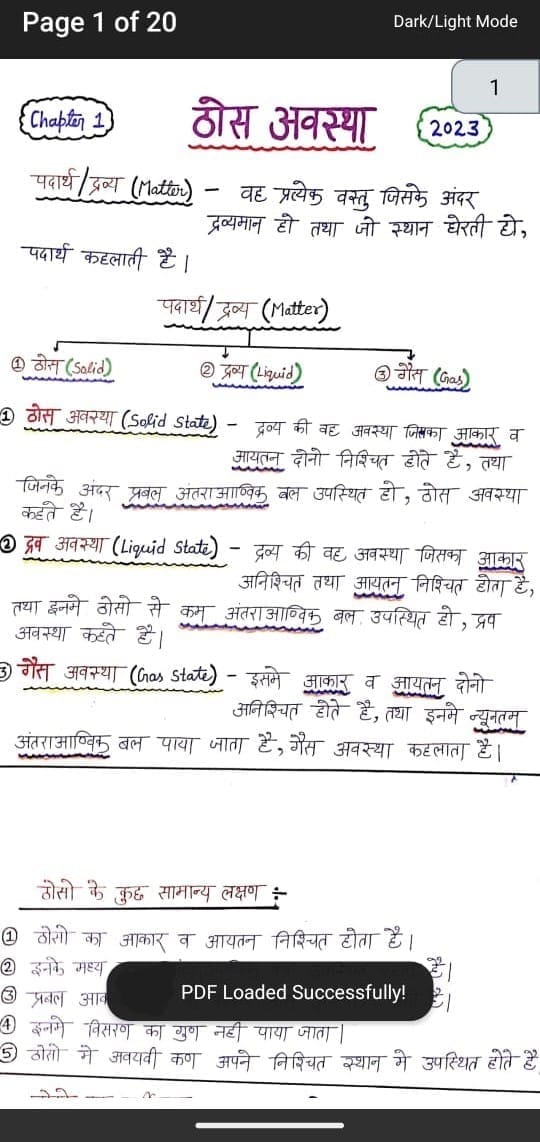 Page 1 of 20
Dark/Light Mode
1
Chapter 1
ठोस अवस्था
2023
पदार्थ/द्रव्य (Matter) - वह प्रत्येक वस्तु जिसके अंदर
द्रव्यमान हो तथा जो स्थान घेरती हो,
पदार्थ कहलाती है।
पदार्थ/द्रव्य (Matter)
① ठोस (Solid)
② द्रव्य (Liquid)
③ गैस (Gas)
① ठोस अवस्था (Solid State) - द्रव्य की वह अवस्था जिसका आकार व
आयतन दोनो निश्चित होते है, तथा
जिनके अंदर प्रबल अंतराआण्विक बल उपस्थित हो, ठोस अवस्था
कहते है।
② द्रव अवस्था (Liquid State) - द्रव्य की वह अवस्था जिसका आकार
अनिश्चित तथा आयतन निश्चित होता है,
तथा इनमे ठोसो से कम अंतराआण्विक बल. उपस्थित हो, द्रव
अवस्था कहते है।
③ गैस अवस्था (Gas State) - इसमे आकार व आयतन दोनो
अनिश्चित होते है, तथा इनमे न्यूनतम
अंतराआण्विक बल पाया जाता है, गैस अवस्था कहलाता है।
ठोसो के कुछ सामान्य लक्षण :-
① ठोसो का आकार व आयतन निश्चित होता है।
② इनके मध्य है।
③ प्रबल है।
PDF Loaded Successfully!
④ इनमे विसरण का गुण नही पाया जाता।
⑤ ठोसो मे अवयवी कण अपने निश्चित स्थान मे उपस्थित होते है